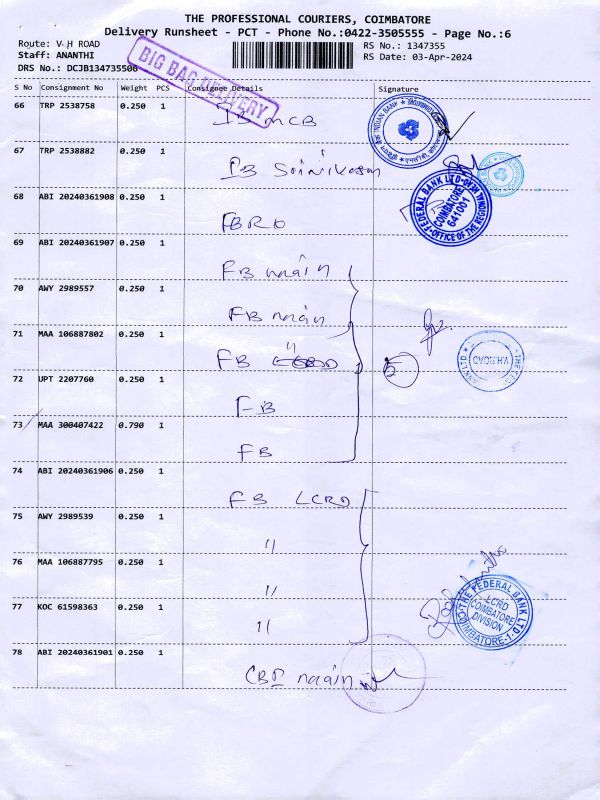 THE PROFESSIONAL COURIERS, COIMBATORE
Delivery Runsheet - PCT - Phone No.:0422-3505555 - Page No.:6
Route: V H ROAD
RS No.: 1347355
Staff: ANANTHI
RS Date: 03-Apr-2024
DRS No.: DCJB134735506
BIG BAG DELIVERY
S No Consignment No Weight PCS Consignee Details Signature
66 TRP 2538758 0.250 1
IB MCB
INDIAN BANK
67 TRP 2538882 0.250 1
IB
68 ABI 20240361908 0.250 1
FBRO
FEDERAL BANK LTD
COIMBATORE
641001
OFFICE OF THE REGIONAL HEAD
69 ABI 20240361907 0.250 1
FB main
70 AWY 2989557 0.250 1
FB main
71 MAA 106887802 0.250 1
FB
5
V.H.ROAD
72 UPT 2207760 0.250 1
FB
73 MAA 300407422 0.790 1
FB
74 ABI 20240361906 0.250 1
FB LCRD
75 AWY 2989539 0.250 1
"
76 MAA 106887795 0.250 1
"
77 KOC 61598363 0.250 1
"
THE FEDERAL BANK LTD
LCRD
COIMBATORE
DIVISION
COIMBATORE-1
78 ABI 20240361901 0.250 1
main